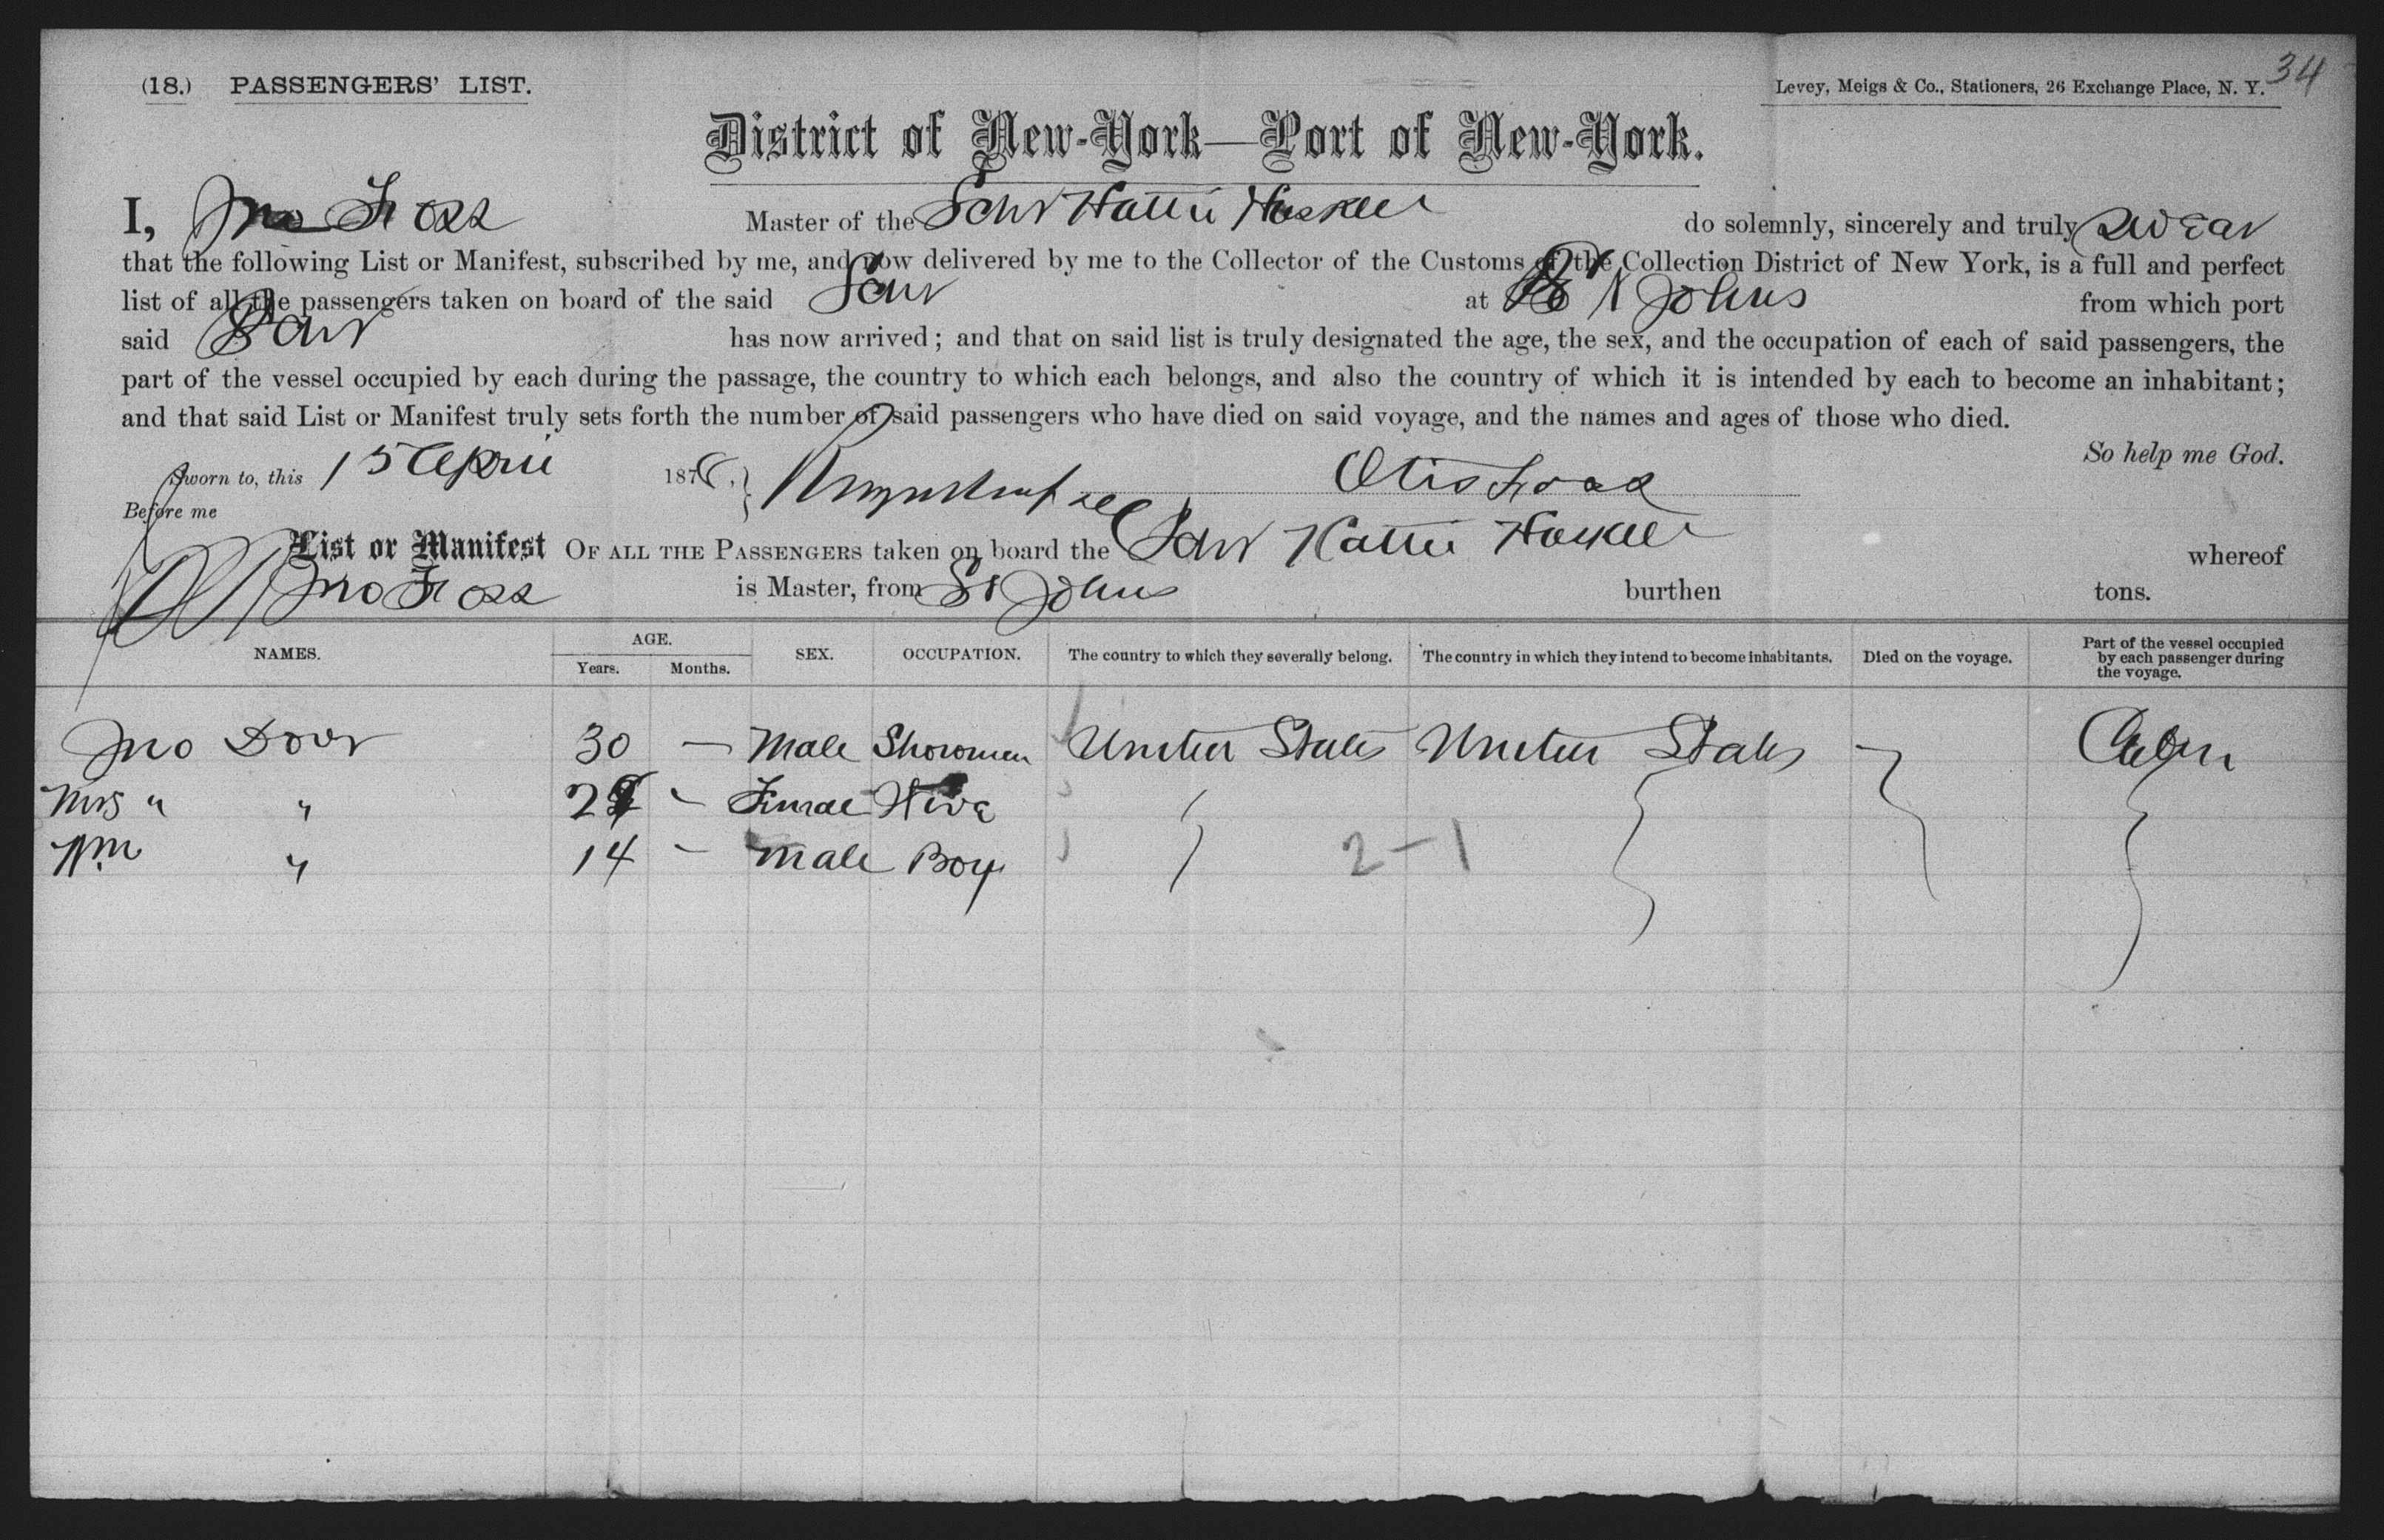 (18.) PASSENGERS' LIST.
Levey, Meigs & Co., Stationers, 26 Exchange Place, N. Y. 34
District of New-York—Port of New-York.
I, Jno Foss Master of the Schr Hattie Haskell do solemnly, sincerely and truly swear
that the following List or Manifest, subscribed by me, and now delivered by me to the Collector of the Customs of the Collection District of New York, is a full and perfect
list of all the passengers taken on board of the said Schr at St Johns from which port
said Schr has now arrived; and that on said list is truly designated the age, the sex, and the occupation of each of said passengers, the
part of the vessel occupied by each during the passage, the country to which each belongs, and also the country of which it is intended by each to become an inhabitant;
and that said List or Manifest truly sets forth the number of said passengers who have died on said voyage, and the names and ages of those who died.
So help me God.
Sworn to, this 15 April 1878. Otis Foss
Before me
List or Manifest OF ALL THE PASSENGERS taken on board the Schr Hattie Haskell whereof
Jno Foss is Master, from St Johns burthen tons.
NAMES. AGE. Years. Months. SEX. OCCUPATION. The country to which they severally belong. The country in which they intend to become inhabitants. Died on the voyage. Part of the vessel occupied by each passenger during the voyage.
Jno Dorr 30 — Male Showman United States United States Cabin
Mrs " " 2 - Female Wife
Wm " 14 - Male Boy 2-1